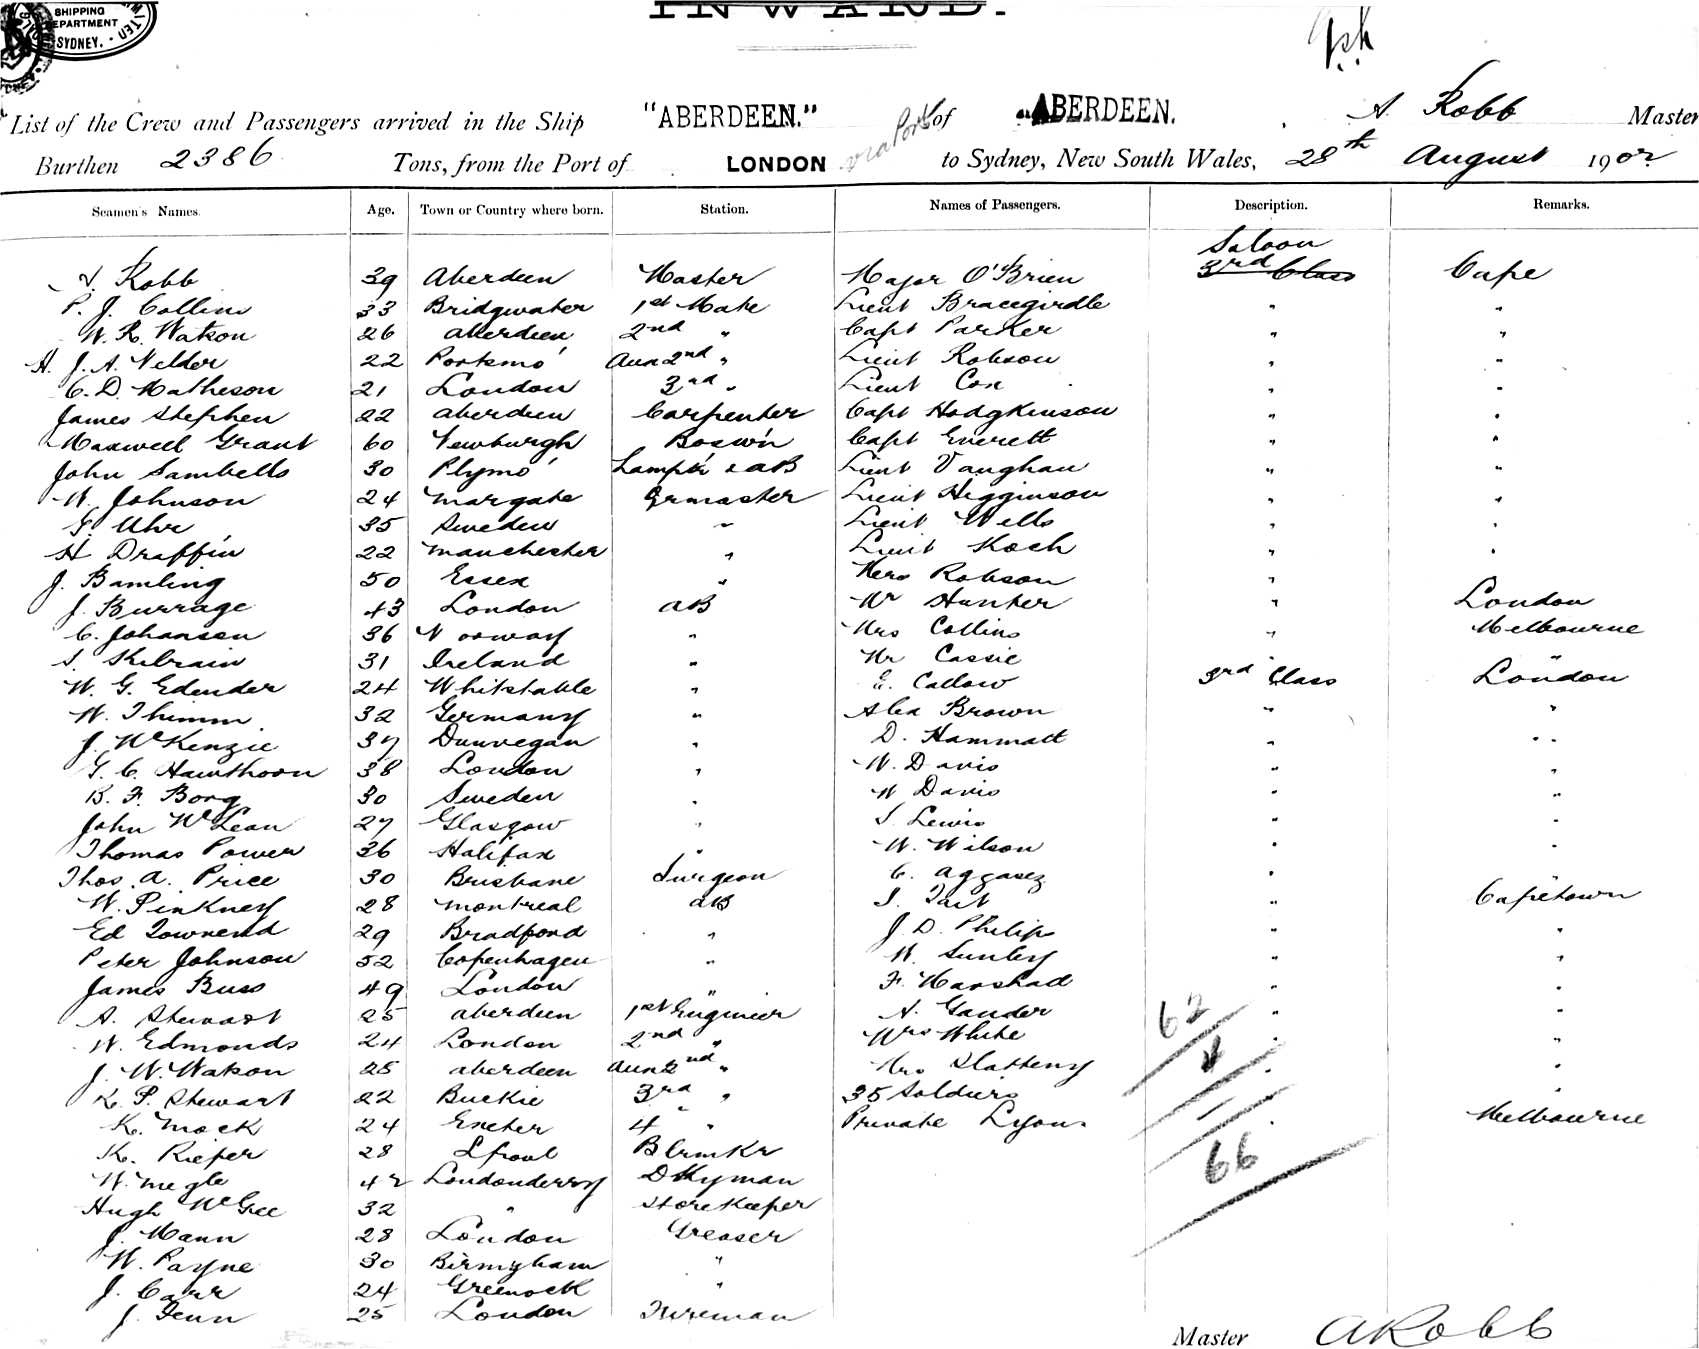 SHIPPING
DEPARTMENT
SYDNEY.
INWARD.
List of the Crew and Passengers arrived in the Ship "ABERDEEN." of ABERDEEN. A. Robb Master
Burthen 2386 Tons, from the Port of LONDON via Ports to Sydney, New South Wales, 28th August 1902
Seamen's Names. Age. Town or Country where born. Station. Names of Passengers. Description. Remarks.
Saloon
A. Robb 39 Aberdeen Master Major O'Brien 3rd Class Cape
P. J. Collins 33 Bridgwater 1st Mate Lieut Bracegirdle " "
W. R. Watson 26 Aberdeen 2nd " Capt Parker " "
H. J. A. Velder 22 Portsmo' Aux 2nd " Lieut Robson " "
C. D. Matheson 21 London 3rd " Lieut Cox " "
James Stephen 22 Aberdeen Carpenter Capt Hodgkinson " "
Maxwell Grant 60 Newburgh Bosw'n Capt Everett " "
John Sambells 30 Plymo' Lamp'r & AB Lieut Vaughan " "
W. Johnson 24 Margate Qrmaster Lieut Higginson " "
G. Uhr 35 Sweden " Lieut Wells " "
H Draffin 22 Manchester " Lieut Koch " "
J. Bamling 50 Essex " Mrs Robson "
J. Burrage 43 London AB Mr Hunter " London
C. Johansen 36 Norway " Mrs Collins " Melbourne
S. Skibrain 31 Ireland " Mr Cassie " "
W. G. Edender 24 Whitstable " E. Callow 3rd Class London
W. Thimm 32 Germany " Alex Brown " "
J. McKenzie 37 Dunvegan " D. Hammatt " "
G. C. Hawthorn 38 London " W. Davis " "
B. F. Borg 30 Sweden " W Davis " "
John McLean 27 Glasgow " S. Lewis " "
Thomas Power 36 Halifax " W. Wilson " "
Thos. A. Price 30 Brisbane Surgeon C. Aggasez " "
W. Pinkney 28 Montreal AB S. Tait " Capetown
Ed Townend 29 Bradford " J. D. Philip " "
Peter Johnson 52 Copenhagen " W. Sunley " "
James Buss 49 London " F. Marshad " "
A. Stewart 25 Aberdeen 1st Engineer A. Gander " "
W. Edmonds 24 London 2nd " Mrs White " "
J. W. Watson 25 Aberdeen Aux 2nd " Mrs Slattery " "
K. P. Stewart 22 Buckie 3rd " 35 Soldiers "
K. Mock 24 Exeter 4 " Private Lyons " Melbourne
K. Rieper 28 L'pool Blrmkr
W. Megle 42 Londonderry Dkyman
Hugh McGee 32 " Storekeeper
J. Mann 28 London Greaser
W. Payne 30 Birmgham "
J. Carr 24 Greenock "
J. Fenn 25 London Fireman
62
4
66
Master A Robb